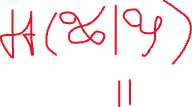 H(X|Y)
||